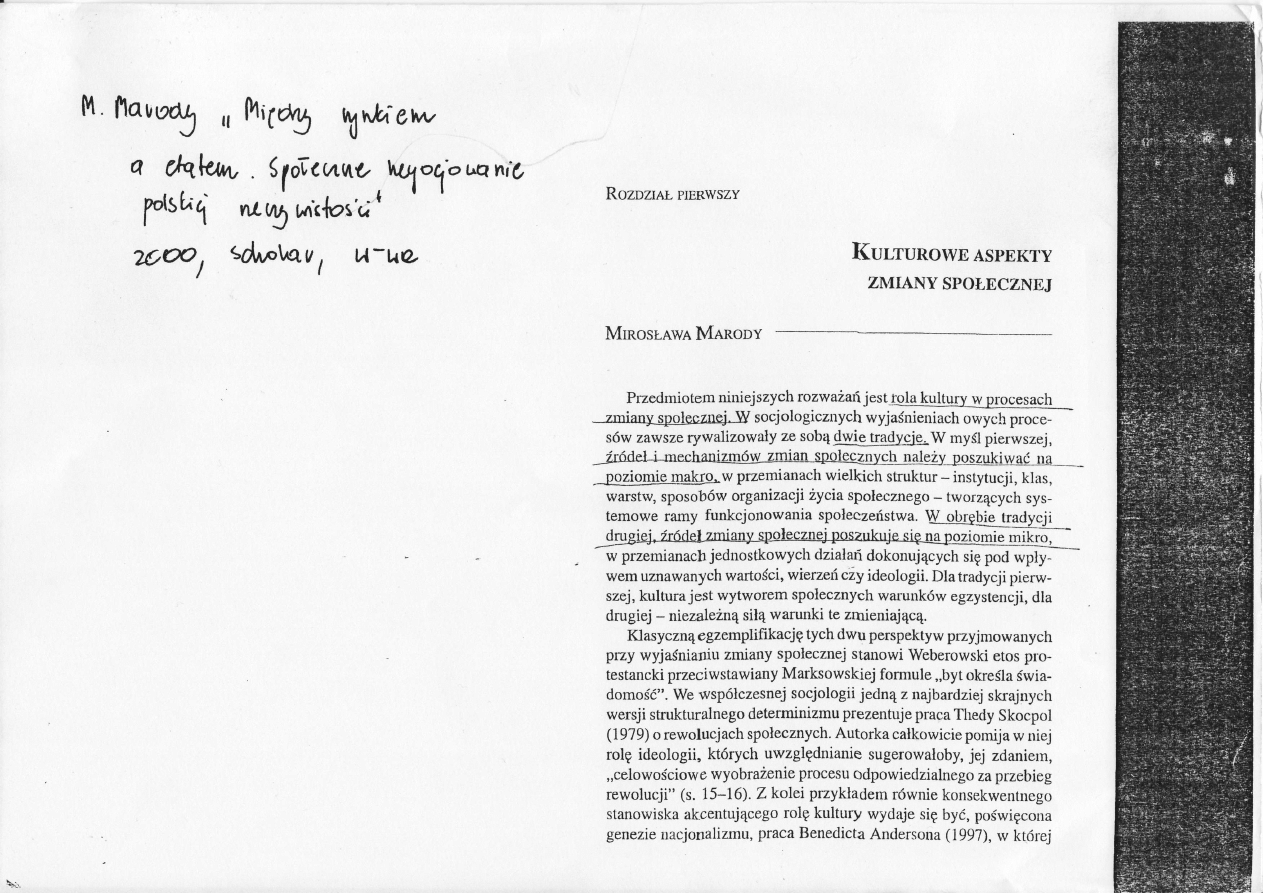 M. Marody „Między rynkiem
a etatem. Społeczne negocjowanie
polskiej rzeczywistości"
2000, Scholar, W-wa
ROZDZIAŁ PIERWSZY
KULTUROWE ASPEKTY
ZMIANY SPOŁECZNEJ
MIROSŁAWA MARODY
Przedmiotem niniejszych rozważań jest rola kultury w procesach
zmiany społecznej. W socjologicznych wyjaśnieniach owych proce-
sów zawsze rywalizowały ze sobą dwie tradycje. W myśl pierwszej,
źródeł i mechanizmów zmian społecznych należy poszukiwać na
poziomie makro, w przemianach wielkich struktur – instytucji, klas,
warstw, sposobów organizacji życia społecznego – tworzących sys-
temowe ramy funkcjonowania społeczeństwa. W obrębie tradycji
drugiej, źródeł zmiany społecznej poszukuje się na poziomie mikro,
w przemianach jednostkowych działań dokonujących się pod wpły-
wem uznawanych wartości, wierzeń czy ideologii. Dla tradycji pierw-
szej, kultura jest wytworem społecznych warunków egzystencji, dla
drugiej – niezależną siłą warunki te zmieniającą.
Klasyczną egzemplifikację tych dwu perspektyw przyjmowanych
przy wyjaśnianiu zmiany społecznej stanowi Weberowski etos pro-
testancki przeciwstawiany Marksowskiej formule „byt określa świa-
domość”. We współczesnej socjologii jedną z najbardziej skrajnych
wersji strukturalnego determinizmu prezentuje praca Thedy Skocpol
(1979) o rewolucjach społecznych. Autorka całkowicie pomija w niej
rolę ideologii, których uwzględnianie sugerowałoby, jej zdaniem,
„celowościowe wyobrażenie procesu odpowiedzialnego za przebieg
rewolucji” (s. 15–16). Z kolei przykładem równie konsekwentnego
stanowiska akcentującego rolę kultury wydaje się być, poświęcona
genezie nacjonalizmu, praca Benedicta Andersona (1997), w której